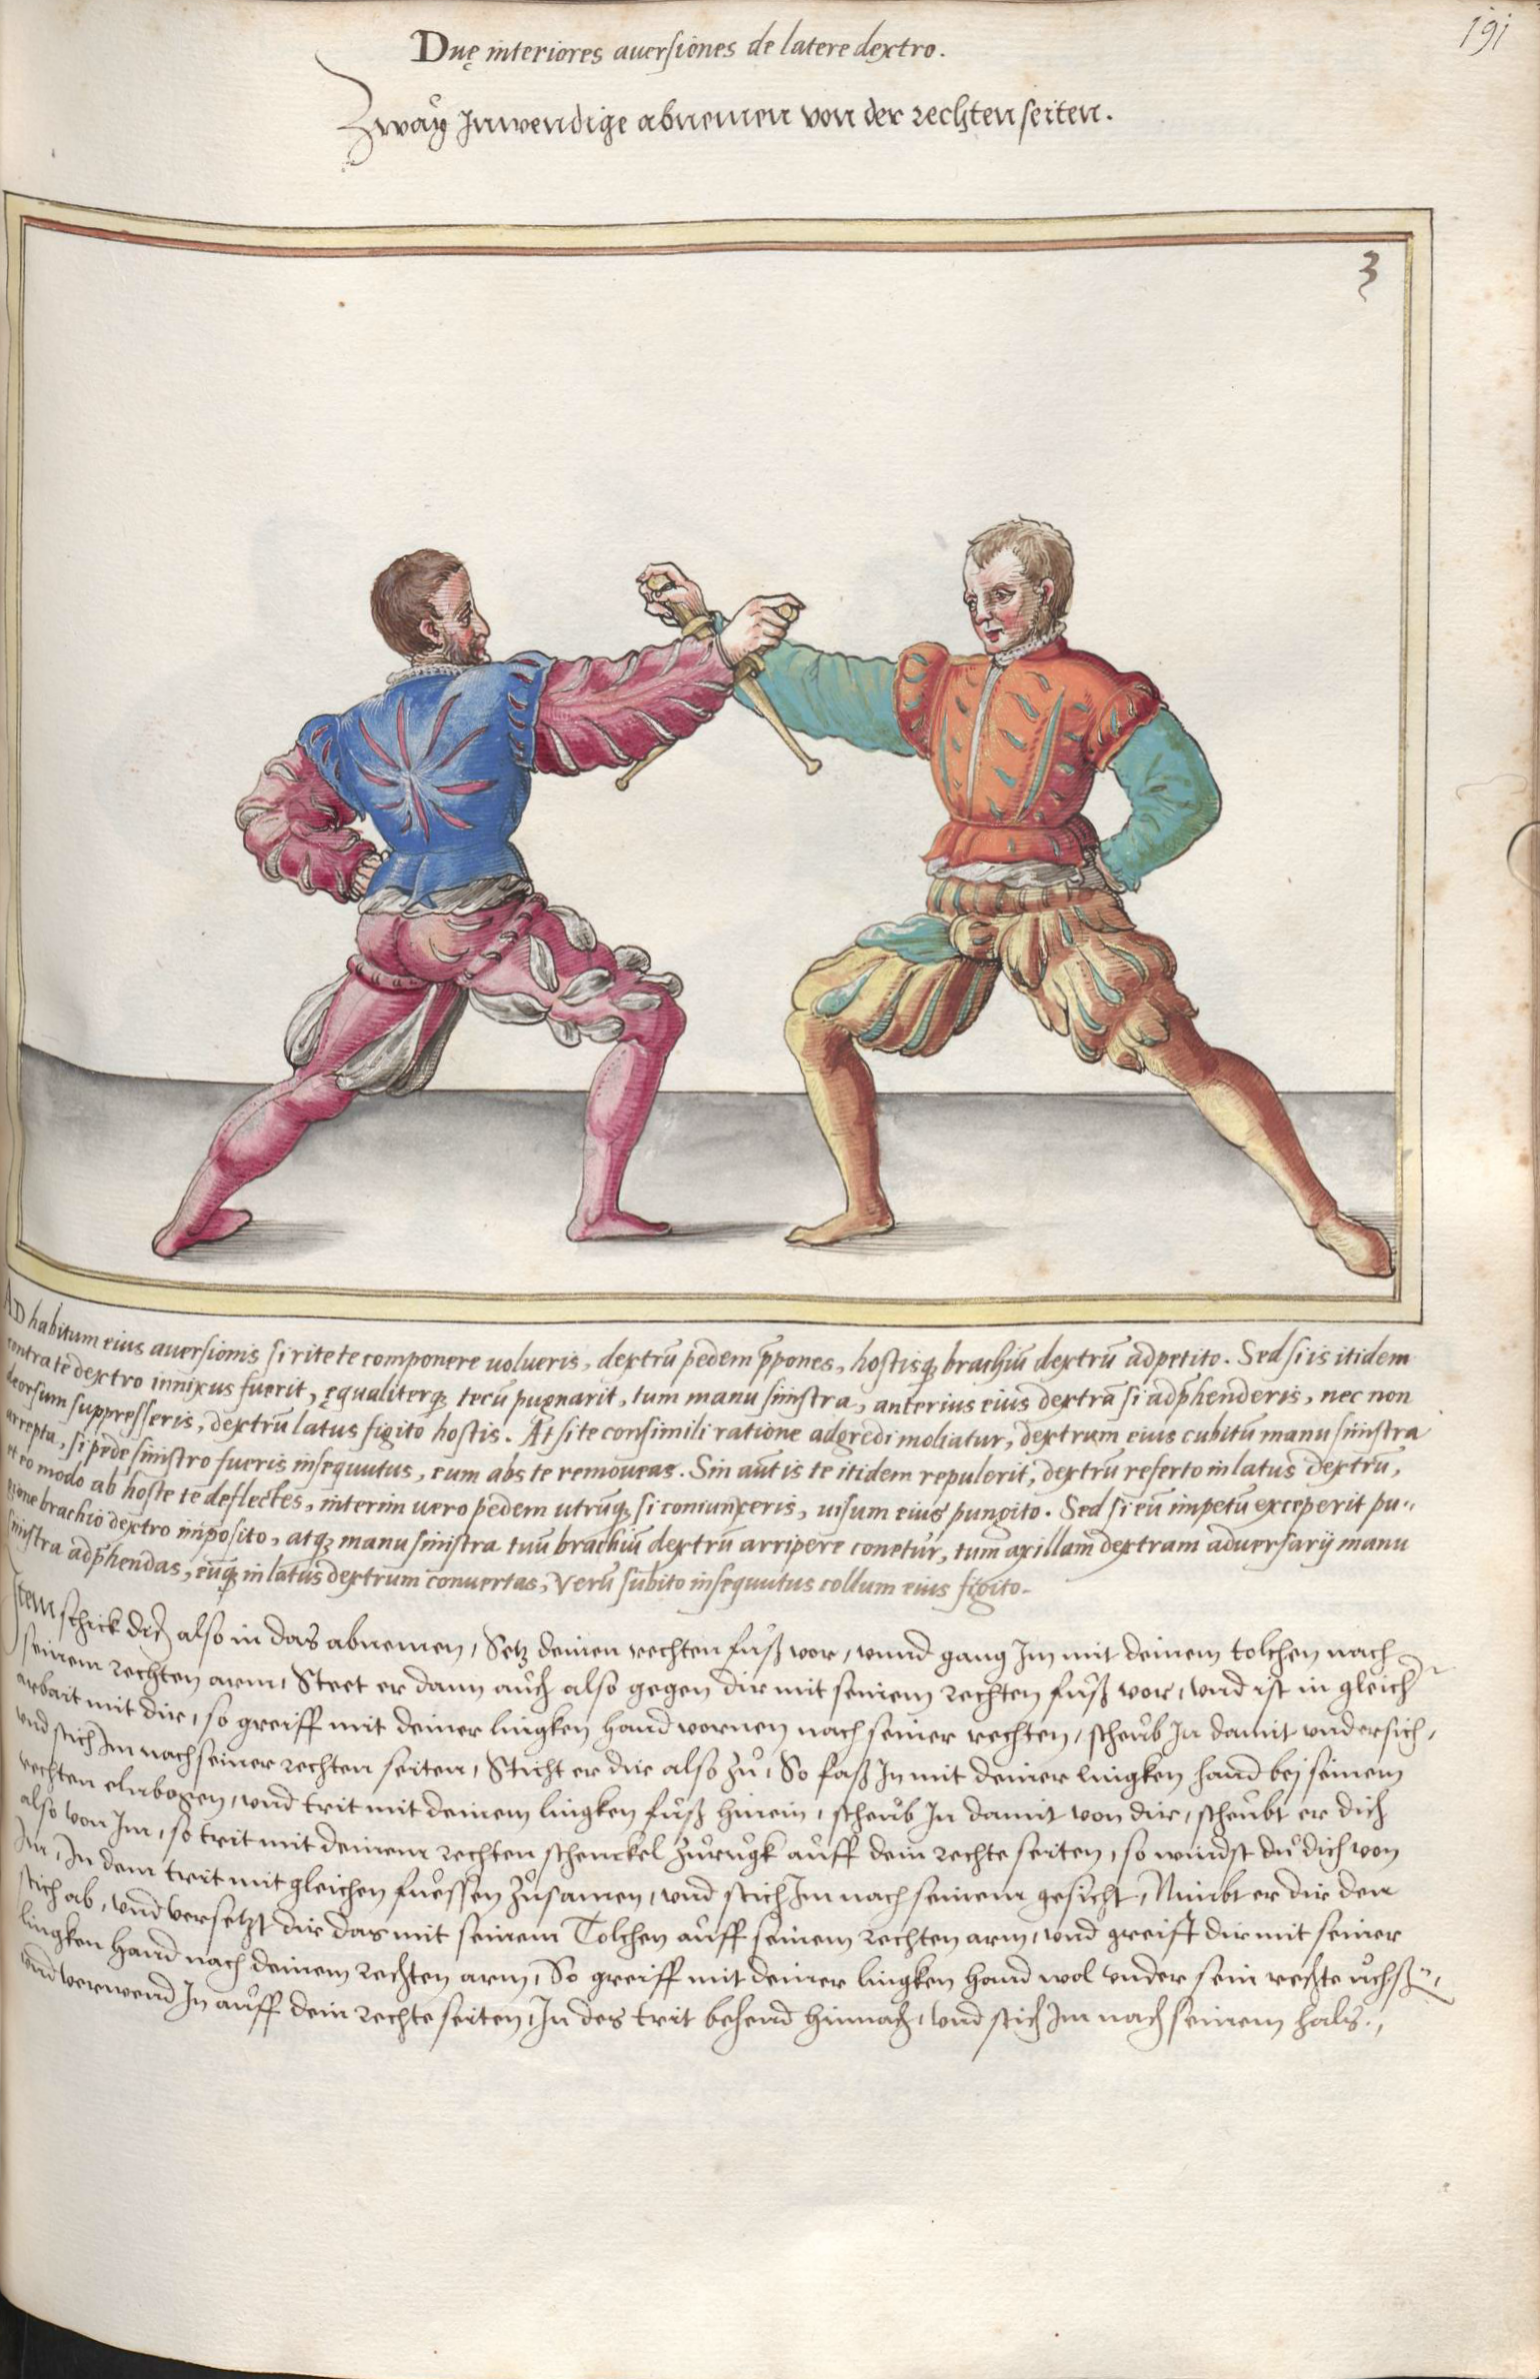 191
Duę interiores auersiones de latere dextro.
Zwaÿ Inwendige abnemen von der rechten seiten.
3
AD habitum eius auersionis si rite te componere uolueris, dextrū pedem p̄pones, hostisq; brachiū dextrū adpetito. Sed si is itidem
contra te dextro innixus fuerit, ęqualiterq; tecū pugnarit, tum manu sinistra, anterius eius dextrā si adp̄henderis, nec non
deorsum suppresseris, dextrū latus figito hostis. At si te consimili ratione adgredi moliatur, dextrum eius cubitū manu sinistra
arrepta, si pede sinistro fueris insequutus, eum abs te remoueas. Sin aūt is te itidem repulerit, dextrū referto in latus dextrū,
et eo modo ab hoste te deflectes, interim uero pedem utrūq; si coniunxeris, uisum eius pungito. Sed si eū impetū exceperit pu-
gione brachio dextro imposito, atq; manu sinistra tuū brachiū dextrū arripere conetur, tum axillam dextram aduersarij manu
sinistra adp̄hendas, eūq; in latus dextrum conuertas, Verū subito insequutus collum eius figito.
Item schick dich also in das abnemen, Setz deinen rechten fuͦß vor, vnnd gang Im mit deinem tolchen nach
seinem rechten arm, Steet er dann auch also gegen dir mit seinem rechten fuͦß vor, vnd ist in gleicher
arbait mit dir, so greiff mit deiner lingken hand vornen nach seiner rechten, scheub In damit vndersich,
vnd stich Im nach seiner rechten seiten, Sticht er dir also zuͦ, So faß In mit deiner lingken hand bei seinem
rechten elnbogen, vnd trit mit deinem lingken fuͦß hinein, scheub In damit von dir, scheubt er dich
also von Im, so trit mit deinem rechten schenckel zuͦrugk auff dein rechte seiten, so windst du dich von
Im, In dem trit mit gleichen fuessen zuͦsamen, vnd stich Im nach seinem gesicht, Nimbt er dir den
stich ab, vnd versetzt dir das mit seinem Tolchen auff seinem rechten arm, vnd greift dir mit seiner
lingken hand nach deinem rechten arm, So greiff mit deiner lingken hand wol vnder sein rechte uchsen,
vnd verwend In auff dein rechte seiten, In des trit behend hinnach, vnd stich Im nach seinem hals.